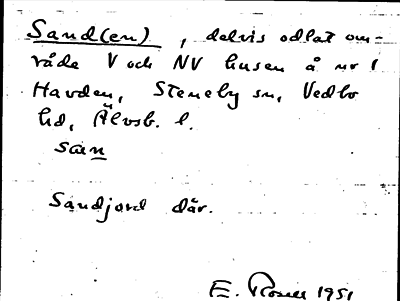 Sand(en), delvis odlat om=
råde V och NV husen å nr 1
Havden, Steneby sn, Vedbo
hd, Älvsb. l.
san
Sandjord där.
E. 1951